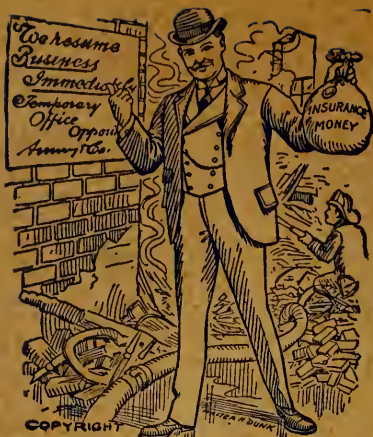 We resume
Business
Immediately
Temporary
Office
Opposi
& Co.
INSURANCE
MONEY
COPYRIGHT